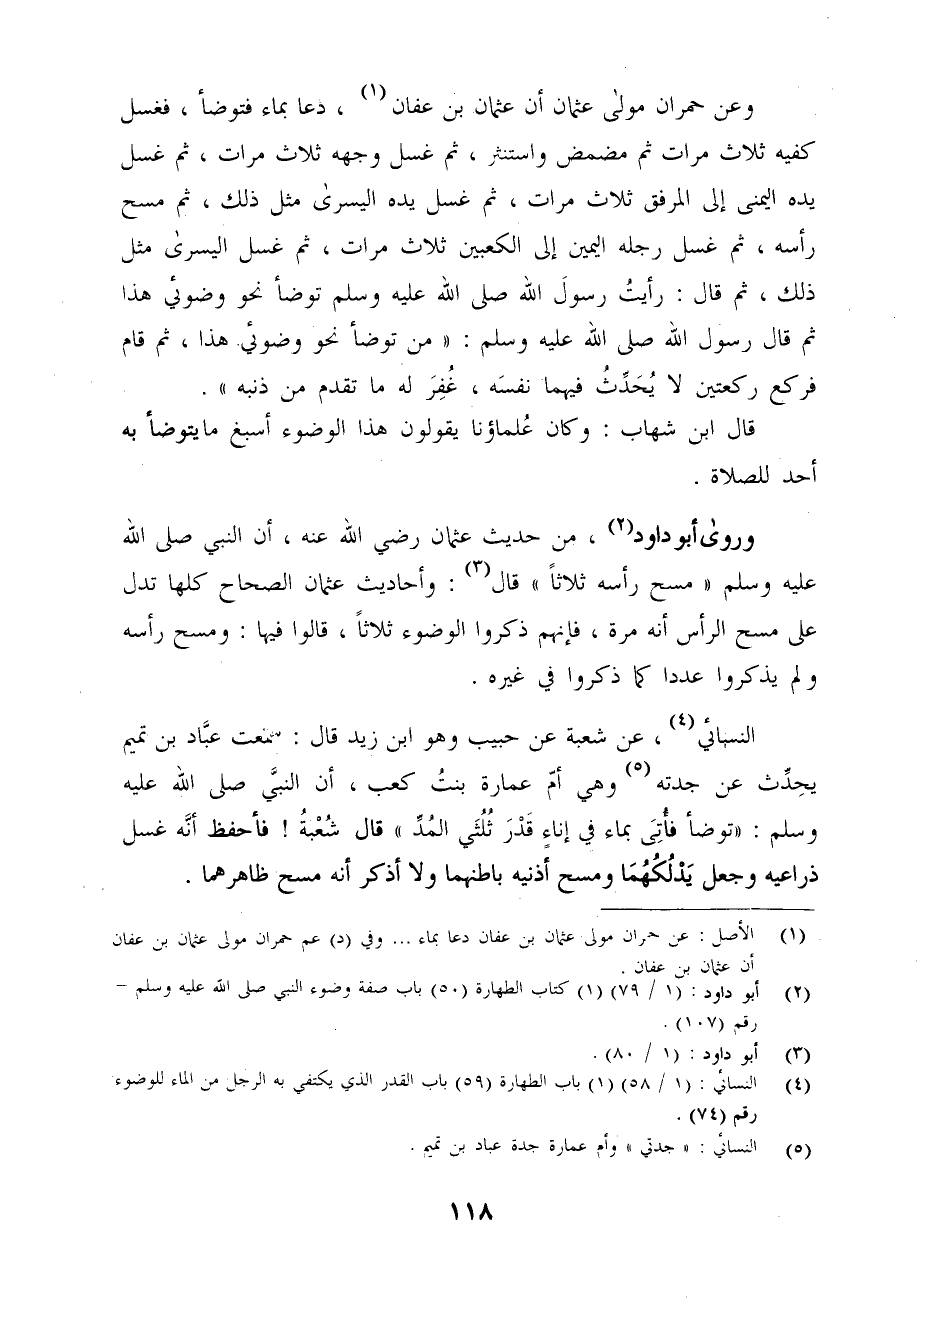 وعن حمران مولىٰ عثمان أن عثمان بن عفان(١) ، دعا بماء فتوضأ ، فغسل
كفيه ثلاث مرات ثم مضمض واستنثر ، ثم غسل وجهه ثلاث مرات ، ثم غسل
يده اليمنى إلى المرفق ثلاث مرات ، ثم غسل يده اليسرىٰ مثل ذلك ، ثم مسح
رأسه ، ثم غسل رجله اليمين إلى الكعبين ثلاث مرات ، ثم غسل اليسرىٰ مثل
ذلك ، ثم قال : رأيتُ رسولَ الله صلى الله عليه وسلم توضأ نحو وضوئي هذا
ثم قال رسول الله صلى الله عليه وسلم : « من توضأ نحو وضوئي هذا ، ثم قام
فركع ركعتين لا يُحَدِّثُ فيهما نفسَه ، غُفِرَ له ما تقدم من ذنبه » .
قال ابن شهاب : وكان عُلماؤنا يقولون هذا الوضوء أسبغ مايتوضأ به
أحد للصلاة .
وروىٰ أبو داود(٢) ، من حديث عثمان رضي الله عنه ، أن النبي صلى الله
عليه وسلم « مسح رأسه ثلاثاً » قال(٣) : وأحاديث عثمان الصحاح كلها تدل
على مسح الرأس أنه مرة ، فإنهم ذكروا الوضوء ثلاثاً ، قالوا فيها : ومسح رأسه
ولم يذكروا عددا كما ذكروا في غيره .
النسائي(٤) ، عن شعبة عن حبيب وهو ابن زيد قال : سمعت عبَّاد بن تميم
يحدِّث عن جدته(٥) وهي أمّ عمارة بنتُ كعب ، أن النبيَّ صلى الله عليه
وسلم : «توضأ فأُتِيَ بماء في إناءٍ قَدْرَ ثُلُثَي المُدِّ » قال شُعْبَةُ ! فأحفظ أنَّه غسل
ذراعيه وجعل يَدْلُكُهُمَا ومسح أذنيه باطنهما ولا أذكر أنه مسح ظاهرهما .
(١) الأصل : عن حمران مولى عثمان بن عفان دعا بماء ... وفي (د) عم حمران مولى عثمان بن عفان
أن عثمان بن عفان .
(٢) أبو داود : (١ / ٧٩) (١) كتاب الطهارة (٥٠) باب صفة وضوء النبي صلى الله عليه وسلم –
رقم (١٠٧) .
(٣) أبو داود : (١ / ٨٠) .
(٤) النسائي : (١ / ٥٨) (١) باب الطهارة (٥٩) باب القدر الذي يكتفي به الرجل من الماء للوضوء
رقم (٧٤) .
(٥) النسائي : « جدتي » وأم عمارة جدة عباد بن تميم .
١١٨